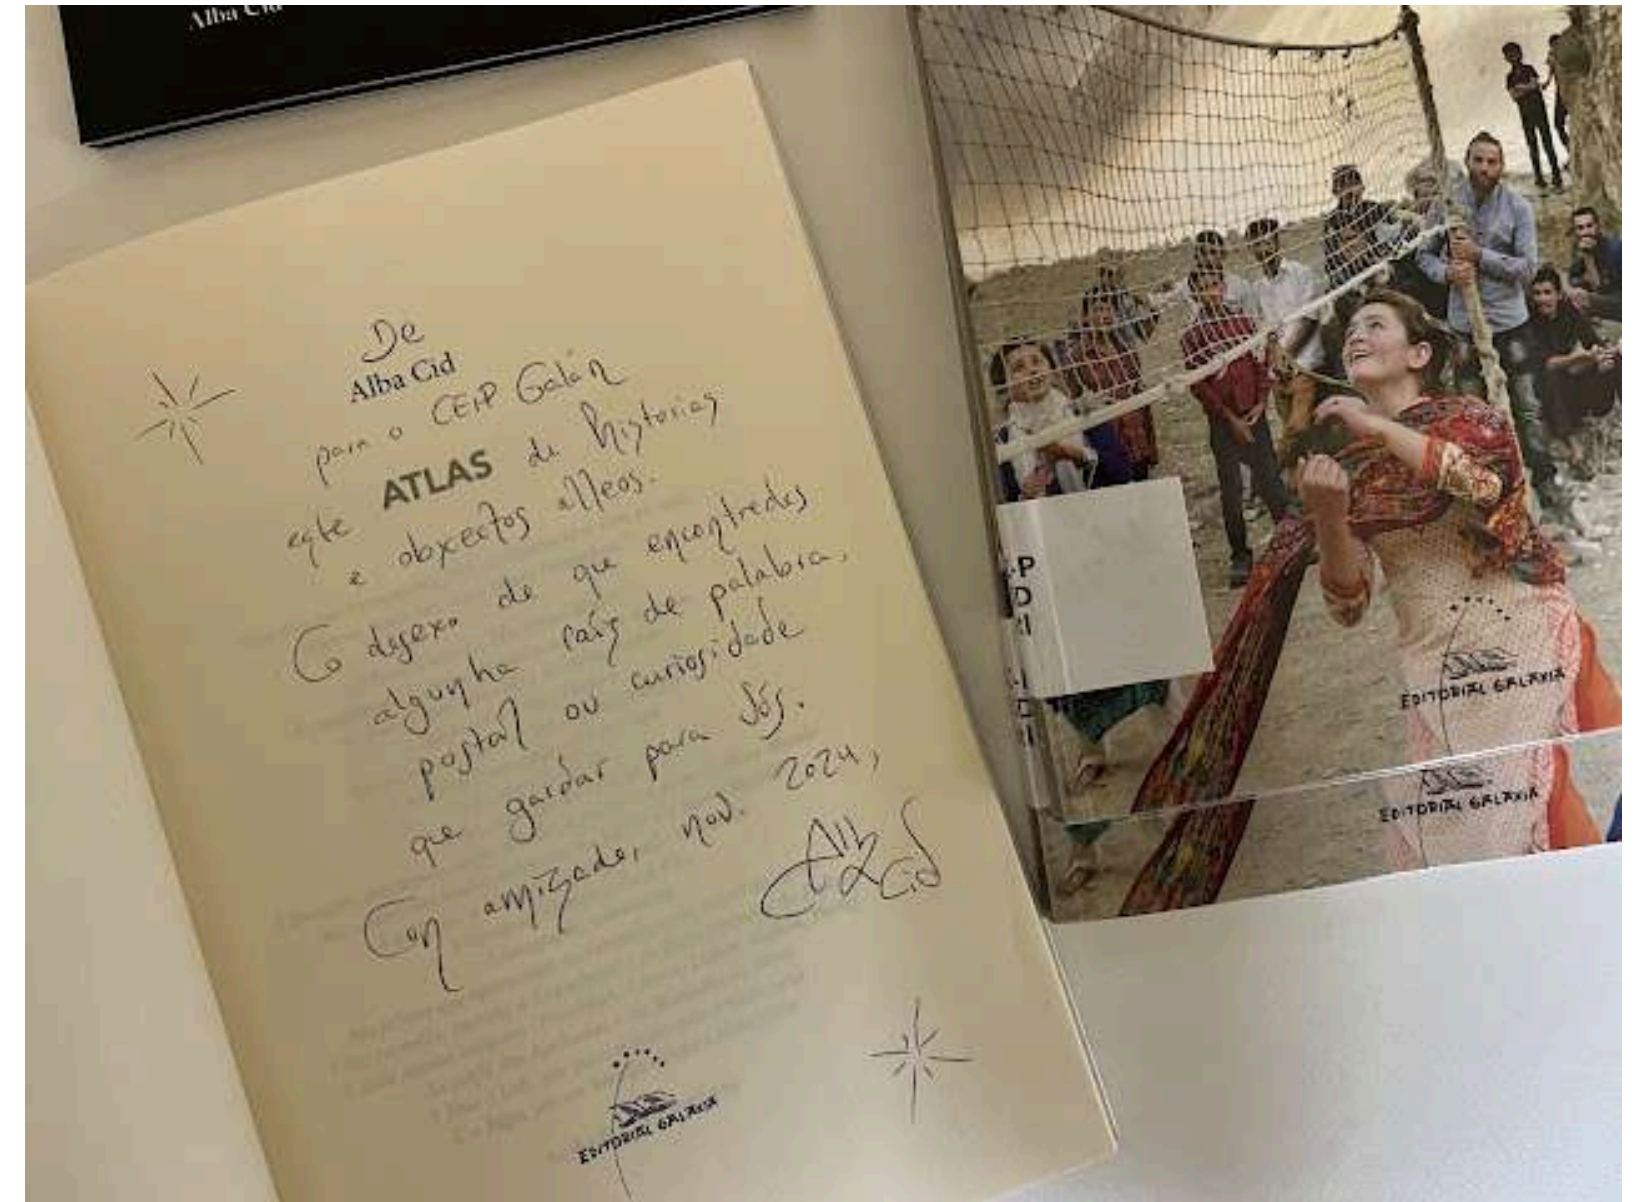 Alba Cid
De
Alba Cid
para o CEIP Galán
este ATLAS de historias
e obxectos alleos.
Co desexo de que encontredes
algunha raíz de palabra,
postal ou curiosidade
que gardar para vós.
Con amizade, nov. 2024,
Alba Cid
EDITORIAL GALAXIA
EDITORIAL GALAXIA
EDITORIAL GALAXIA